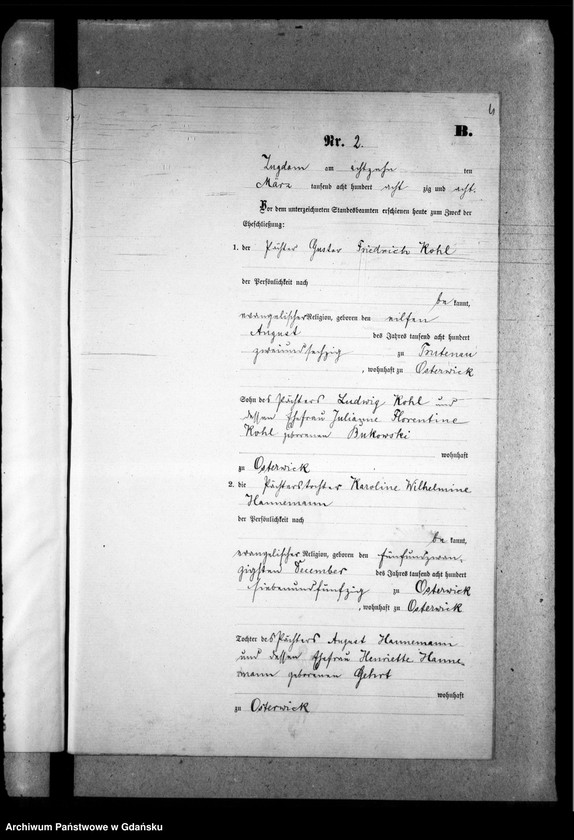 B.
Nr. 2.
Zugdam am achtzehn ten
März tausend acht hundert acht zig und acht.
Vor dem unterzeichneten Standesbeamten erschienen heute zum Zweck der
Eheschließung:
1. der Pächter Gustav Friedrich Kohl
der Persönlichkeit nach
be kannt,
evangelischer Religion, geboren den eilften
August des Jahres tausend acht hundert
zweiundsechzig zu Trutenau
, wohnhaft zu Osterwick
Sohn des Pächters Ludwig Kohl und
dessen Ehefrau Julianne Florentine
Kohl geborenen Bukowski
wohnhaft
zu Osterwick
2. die Pächterstochter Karoline Wilhelmine
Hannemann
der Persönlichkeit nach
be kannt,
evangelischer Religion, geboren den fünfundzwan
zigsten December des Jahres tausend acht hundert
siebenundfünfzig zu Osterwick
, wohnhaft zu Osterwick
Tochter des Pächters August Hannemann
und dessen Ehefrau Henriette Hanne-
mann geborenen Gehrt
wohnhaft
zu Osterwick
Archiwum Państwowe w Gdańsku